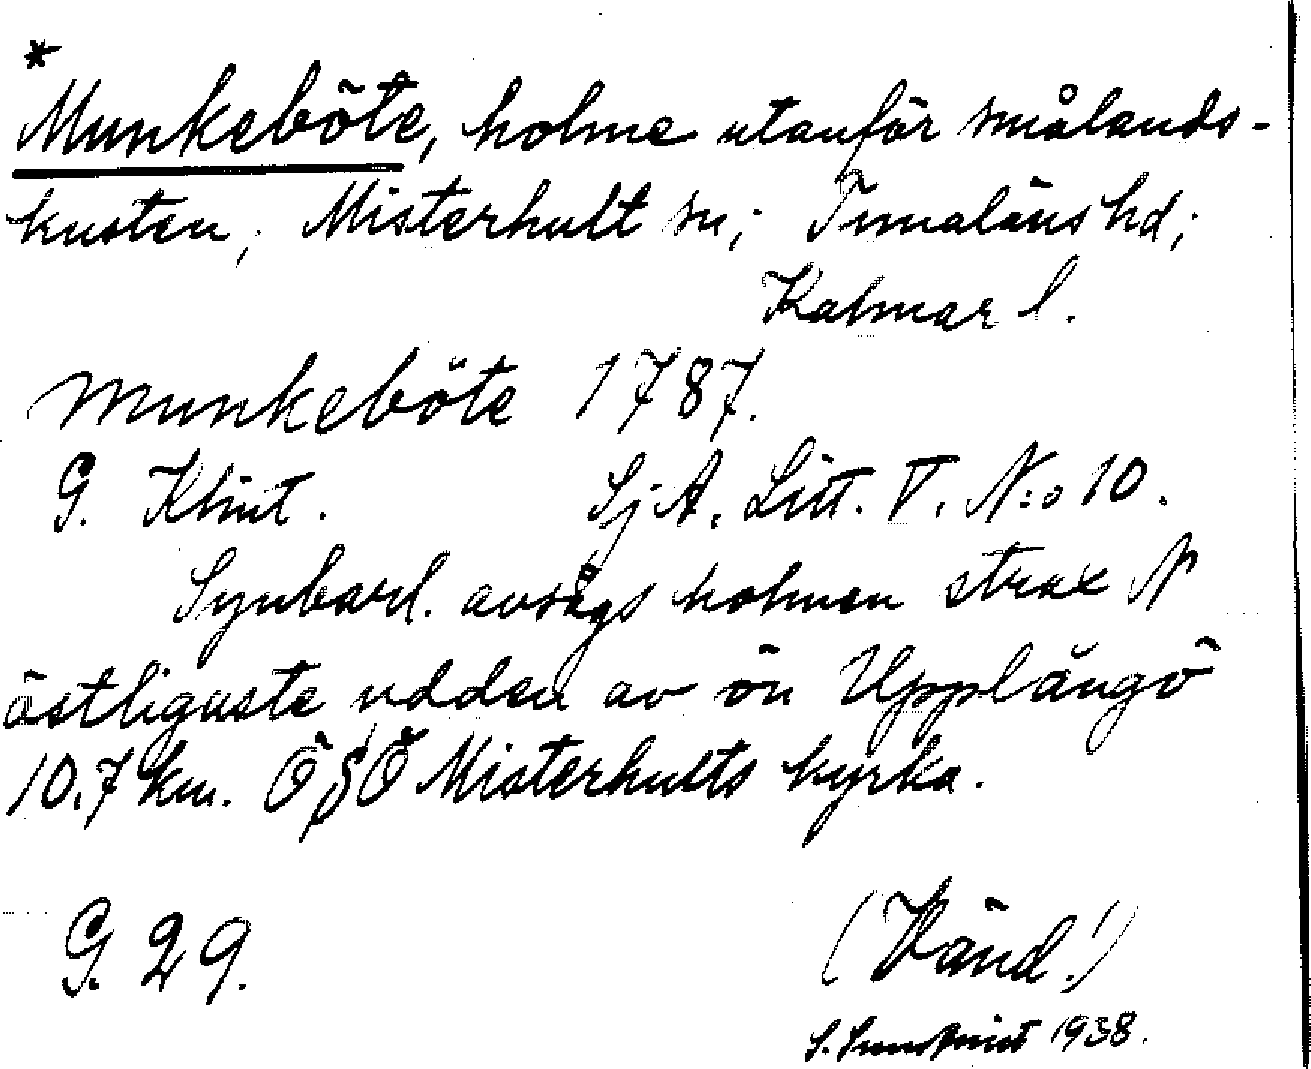 *
Munkeböte, holme utanför smålands-
kusten, Misterhult sn; Tunaläns hd;
Kalmar l.
Munkeböte 1787.
G. Klint. Sj. A. Litt. V. N:o 10.
Synbarl. avsågs holmen strax N
östligaste udden av ön Upplångö
10.7 km. ÖSÖ Misterhults kyrka.
G. 29. (Vänd!)
S. 1938.